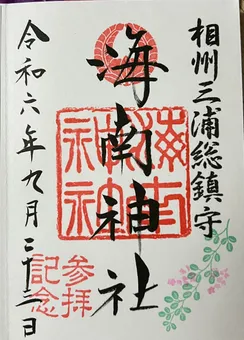 相州三浦総鎮守
海南神社
海南神社
参拝
記念
令和六年九月二十三日